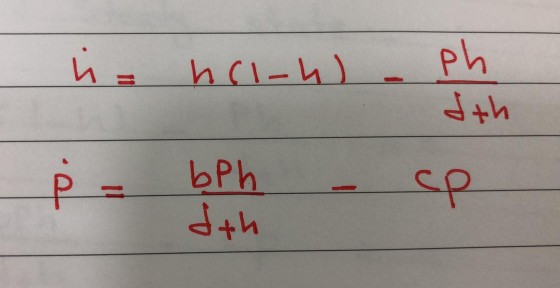 ḣ = h(1-h) - ph/(d+h)
ṗ = bph/(d+h) - cp